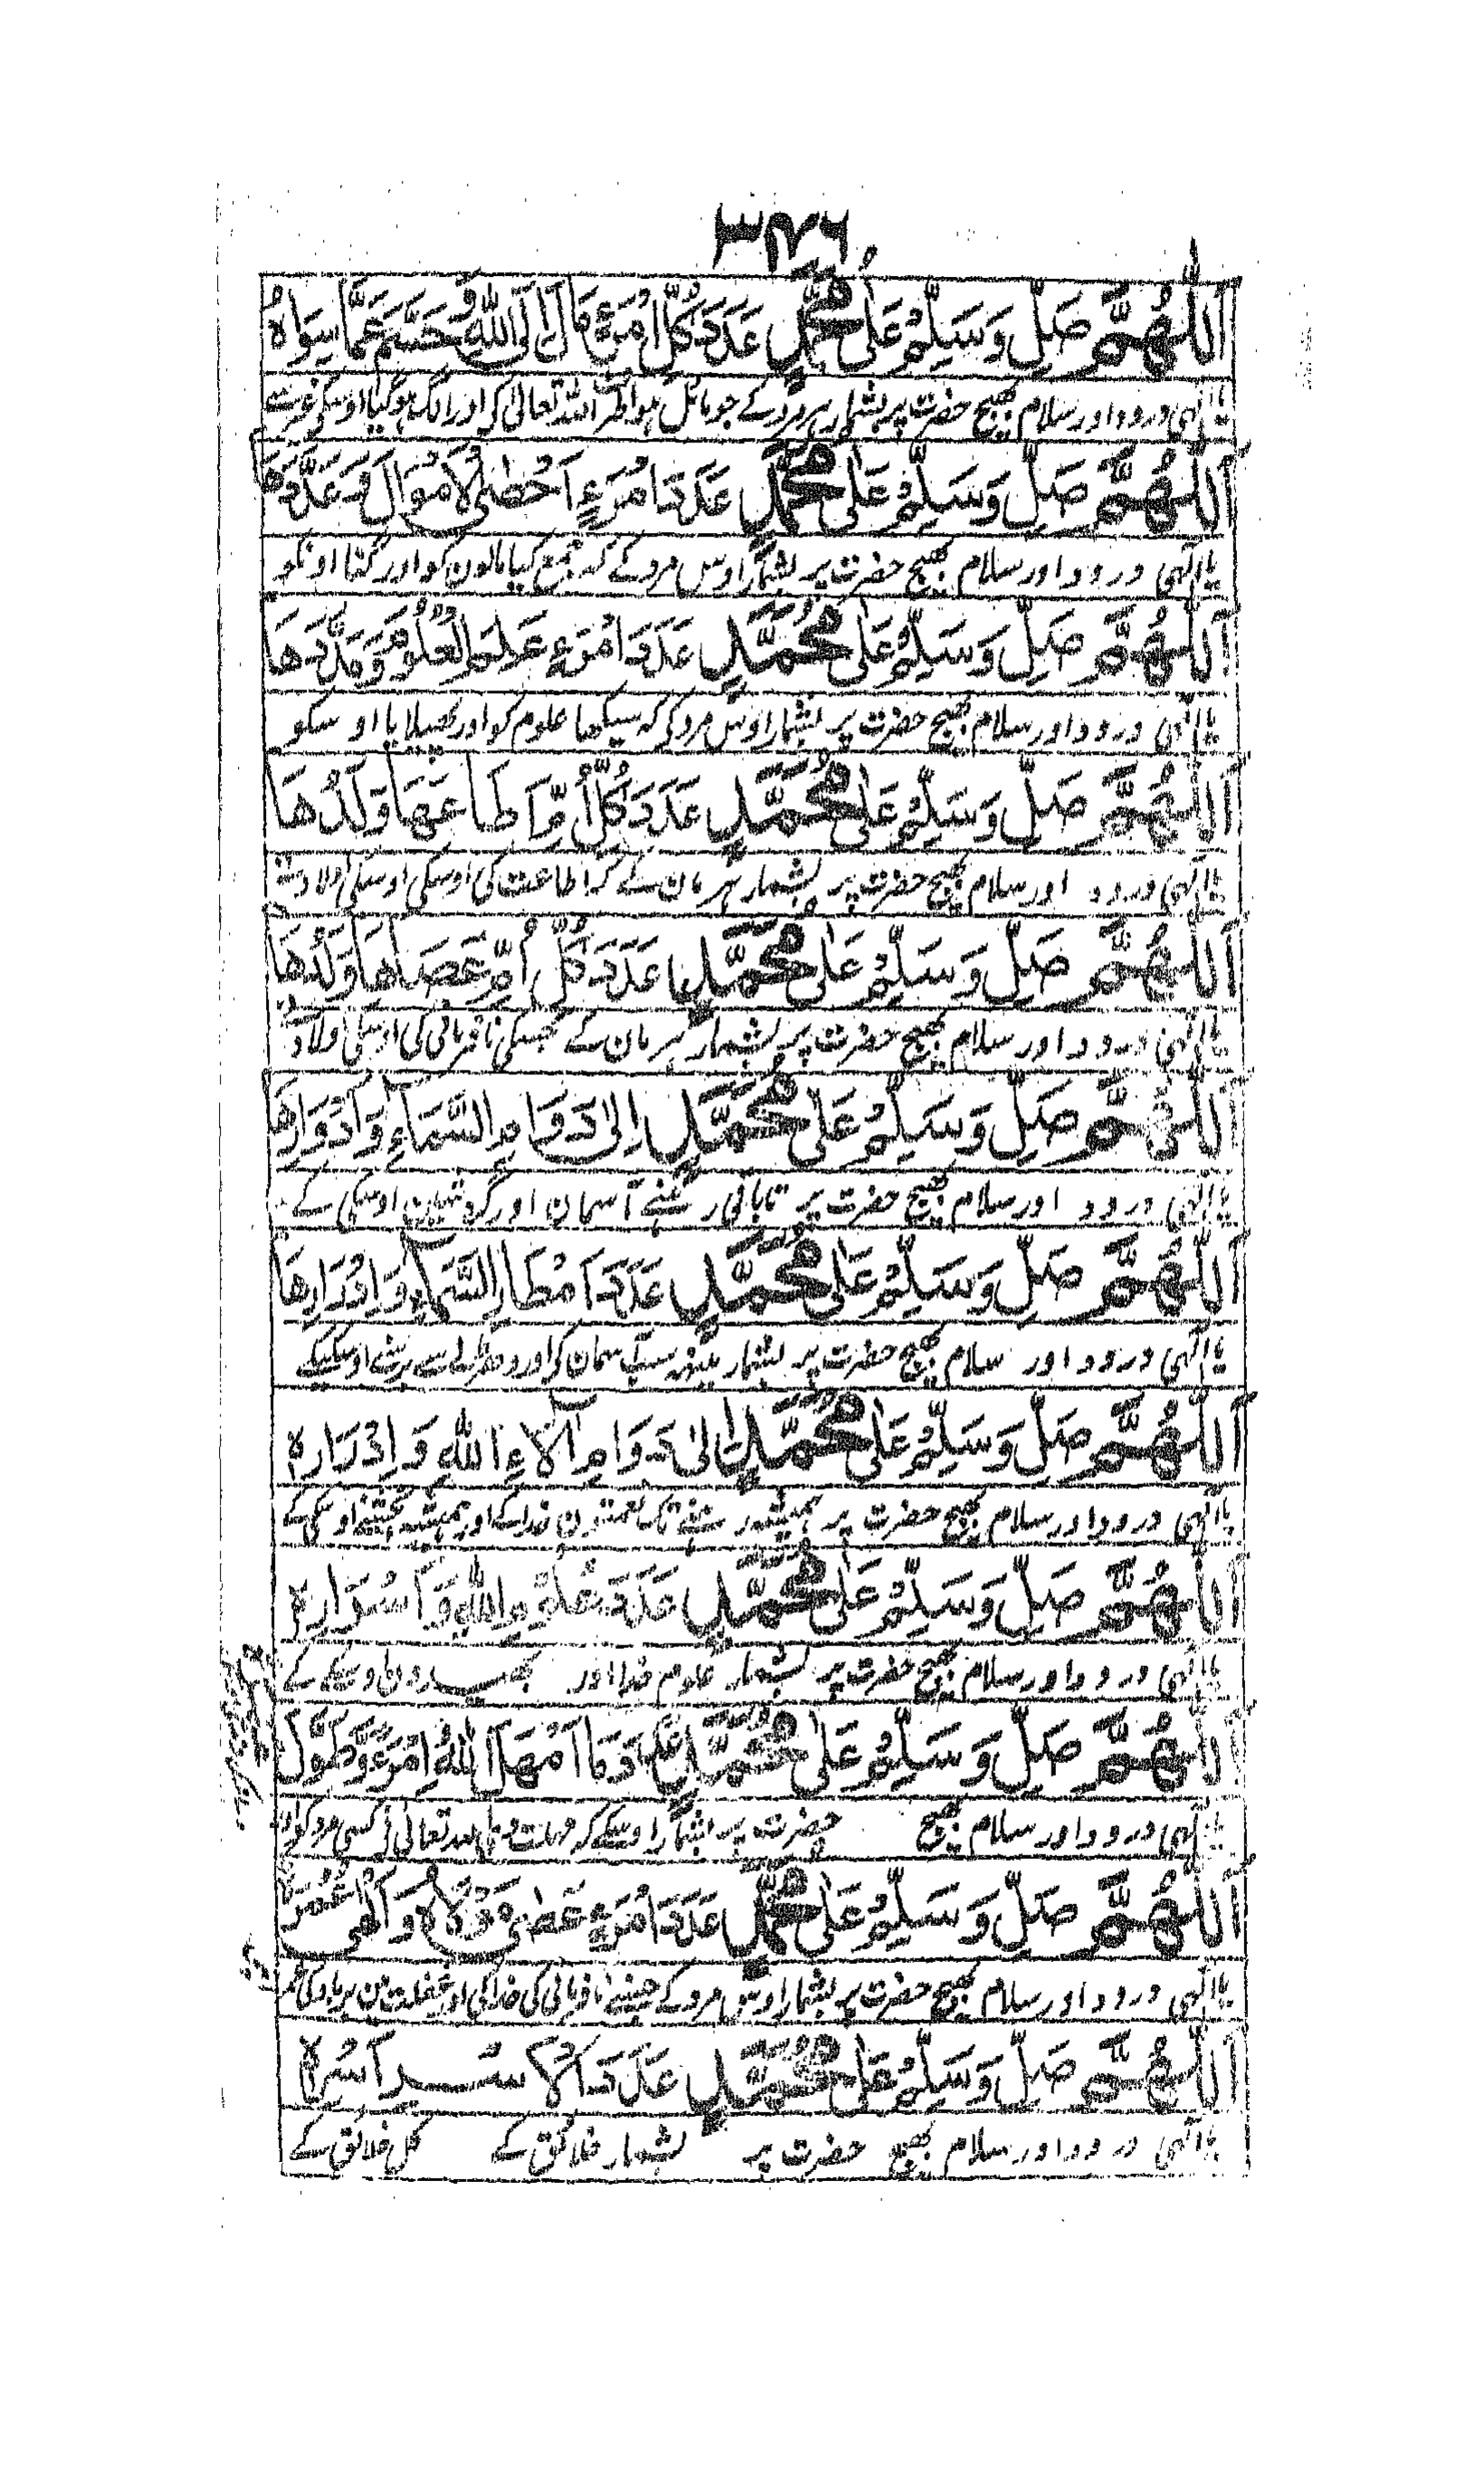 ٣٧٦
اَللّٰهُمَّ صَلِّ وَسَلِّمْ عَلٰى مُحَمَّدٍ عَدَدَ كُلِّ امْرَءٍ مَالَ اِلَى اللهِ وَ عَمَّا سِوَاهُ
یا الٰہی درود اور سلام بھیج حضرت پر بشمار ہر مرد کے جو مائل ہوا طرف اللہ تعالیٰ کی اور الگ ہوگیا اوسکی غیر سے
اَللّٰهُمَّ صَلِّ وَسَلِّمْ عَلٰى مُحَمَّدٍ عَدَدَ امْرَءٍ اَحْصَى الْاَمْوَالَ وَعَدَّدَهَا
یا الٰہی درود اور سلام بھیج حضرت پر بشمار اوس مرد کے کہ جمع کیا مالون کو اور گنا اونکو
اَللّٰهُمَّ صَلِّ وَسَلِّمْ عَلٰى مُحَمَّدٍ عَدَدَ امْرَءٍ عَلِمَ الْعُلُوْمَ وَمَدَّدَهَا
یا الٰہی درود اور سلام بھیج حضرت پر بشمار اوس مرد کی کہ سیکھا علوم کو اور پھیلایا اوسکو
اَللّٰهُمَّ صَلِّ وَسَلِّمْ عَلٰى مُحَمَّدٍ عَدَدَ كُلِّ اُمٍّ اَطَاعَهَا وَلَدُهَا
یا الٰہی درود اور سلام بھیج حضرت پر بشمار ہر مان کے کہ اطاعت کی اوسکی اوسکی اولاد نے
اَللّٰهُمَّ صَلِّ وَسَلِّمْ عَلٰى مُحَمَّدٍ عَدَدَ كُلِّ اُمٍّ عَصَاهَا وَلَدُهَا
یا الٰہی درود اور سلام بھیج حضرت پر بشمار ہر مان کے جسکی نافرمانی کی اوسکی اولاد نے
اَللّٰهُمَّ صَلِّ وَسَلِّمْ عَلٰى مُحَمَّدٍ اِلٰى دَوَامِ السَّمَآءِ وَاَدْوَارِهَا
یا الٰہی درود اور سلام بھیج حضرت پر تا باقی رہنے آسمان اور گردشین اوسکی کے
اَللّٰهُمَّ صَلِّ وَسَلِّمْ عَلٰى مُحَمَّدٍ عَدَدَ اَمْطَارِ السَّمَآءِ وَاِدْرَارِهَا
یا الٰہی درود اور سلام بھیج حضرت پر بشمار آسمان اور سے برسنے اوسکے
اَللّٰهُمَّ صَلِّ وَسَلِّمْ عَلٰى مُحَمَّدٍ اِلٰى دَوَامِ اٰلَآءِ اللهِ وَاِدْرَارِهٖ
یا الٰہی درود اور سلام بھیج حضرت پر ہمیشہ رہنے تک نعمتون خدا کے اور ہمیشہ اوسکی کے
اَللّٰهُمَّ صَلِّ وَسَلِّمْ عَلٰى مُحَمَّدٍ عَدَدَ عُلُوْمِ اللهِ وَاَسْرَارِهٖ
یا الٰہی درود اور سلام بھیج حضرت پر بشمار علوم خدا اور کے
اَللّٰهُمَّ صَلِّ وَسَلِّمْ عَلٰى مُحَمَّدٍ عَدَدَ مَا اَمْهَلَ اللهُ امْرَءً وَّطَوَّلَ
الٰہی درود اور سلام بھیج حضرت پر بشمار اوسکے کہ مہلت اللہ تعالیٰ نے کسی مرد کو
اَللّٰهُمَّ صَلِّ وَسَلِّمْ عَلٰى مُحَمَّدٍ عَدَدَ امْرَءٍ عَصٰى مَوْلَاهُ وَاَلْهٰى عُمْرَهٗ
یا الٰہی درود اور سلام بھیج حضرت پر بشمار اوس مرد کے جسنے نافرمانی کی خدا کی اور غفلت مین برباد کی عمر
اَللّٰهُمَّ صَلِّ وَسَلِّمْ عَلٰى مُحَمَّدٍ عَدَدَ
یا الٰہی درود اور سلام بھیج حضرت پر بشمار خلائق کے کل خلائق کے